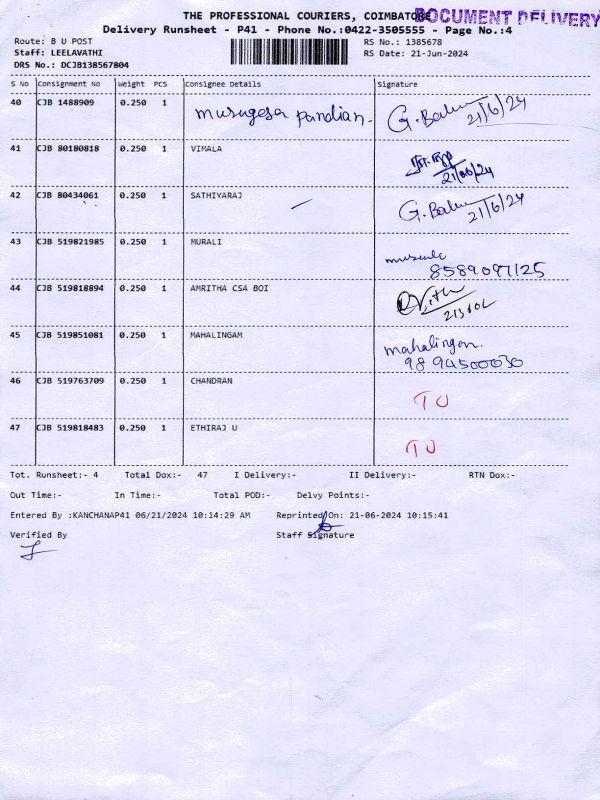 THE PROFESSIONAL COURIERS, COIMBATORE
DOCUMENT DELIVERY
Delivery Runsheet - P41 - Phone No.:0422-3505555 - Page No.:4
Route: B U POST
RS No.: 1385678
Staff: LEELAVATHI
RS Date: 21-Jun-2024
DRS No.: DCJB138567804
S No Consignment No Weight PCS Consignee Details Signature
40 CJB 1488909 0.250 1 Murugesa Pandian. G. Babu 21/6/24
41 CJB 80180818 0.250 1 VIMALA 21/06/24
42 CJB 80434061 0.250 1 SATHIYARAJ G. Babu 21/6/24
43 CJB 519821985 0.250 1 MURALI
8589097125
44 CJB 519818894 0.250 1 AMRITHA CSA BOI
45 CJB 519851081 0.250 1 MAHALINGAM mahalingam.
9894500030
46 CJB 519763709 0.250 1 CHANDRAN TU
47 CJB 519818483 0.250 1 ETHIRAJ U TU
Tot. Runsheet:- 4 Total Dox:- 47 I Delivery:- II Delivery:- RTN Dox:-
Out Time:- In Time:- Total POD:- Delvy Points:-
Entered By :KANCHANAP41 06/21/2024 10:14:29 AM Reprinted On: 21-06-2024 10:15:41
Verified By Staff Signature